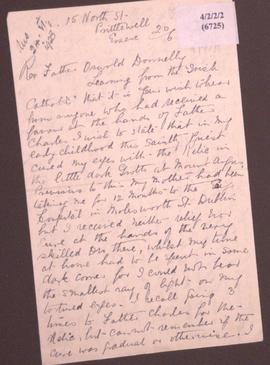 4/2/2/2
(6725)
15 North St.
Prittlewell
Essex
Rev Father Oswald Donnelly
Learning from the Irish
Catholic that it is your wish to hear
from anyone who had received a
favour at the hands of Father
Charles, I wish to state that in my
early childhood this Saintly Priest
cured my eyes with the Relic in
the little dark Grotto at Mount Argus.
Previous to this my Mother had been
taking me for 12 months to the
Hospital in Molesworth St. Dublin
but I received neither relief nor
cure at the hands of the many
skilled Drs there, whilst my time
at home had to be spent in some
dark corner for I could not bear
the smallest ray of light on my
tortured eyes. I recall going 3
times to Father Charles for the
Relic, but cannot remember if the
cure was gradual or otherwise. I